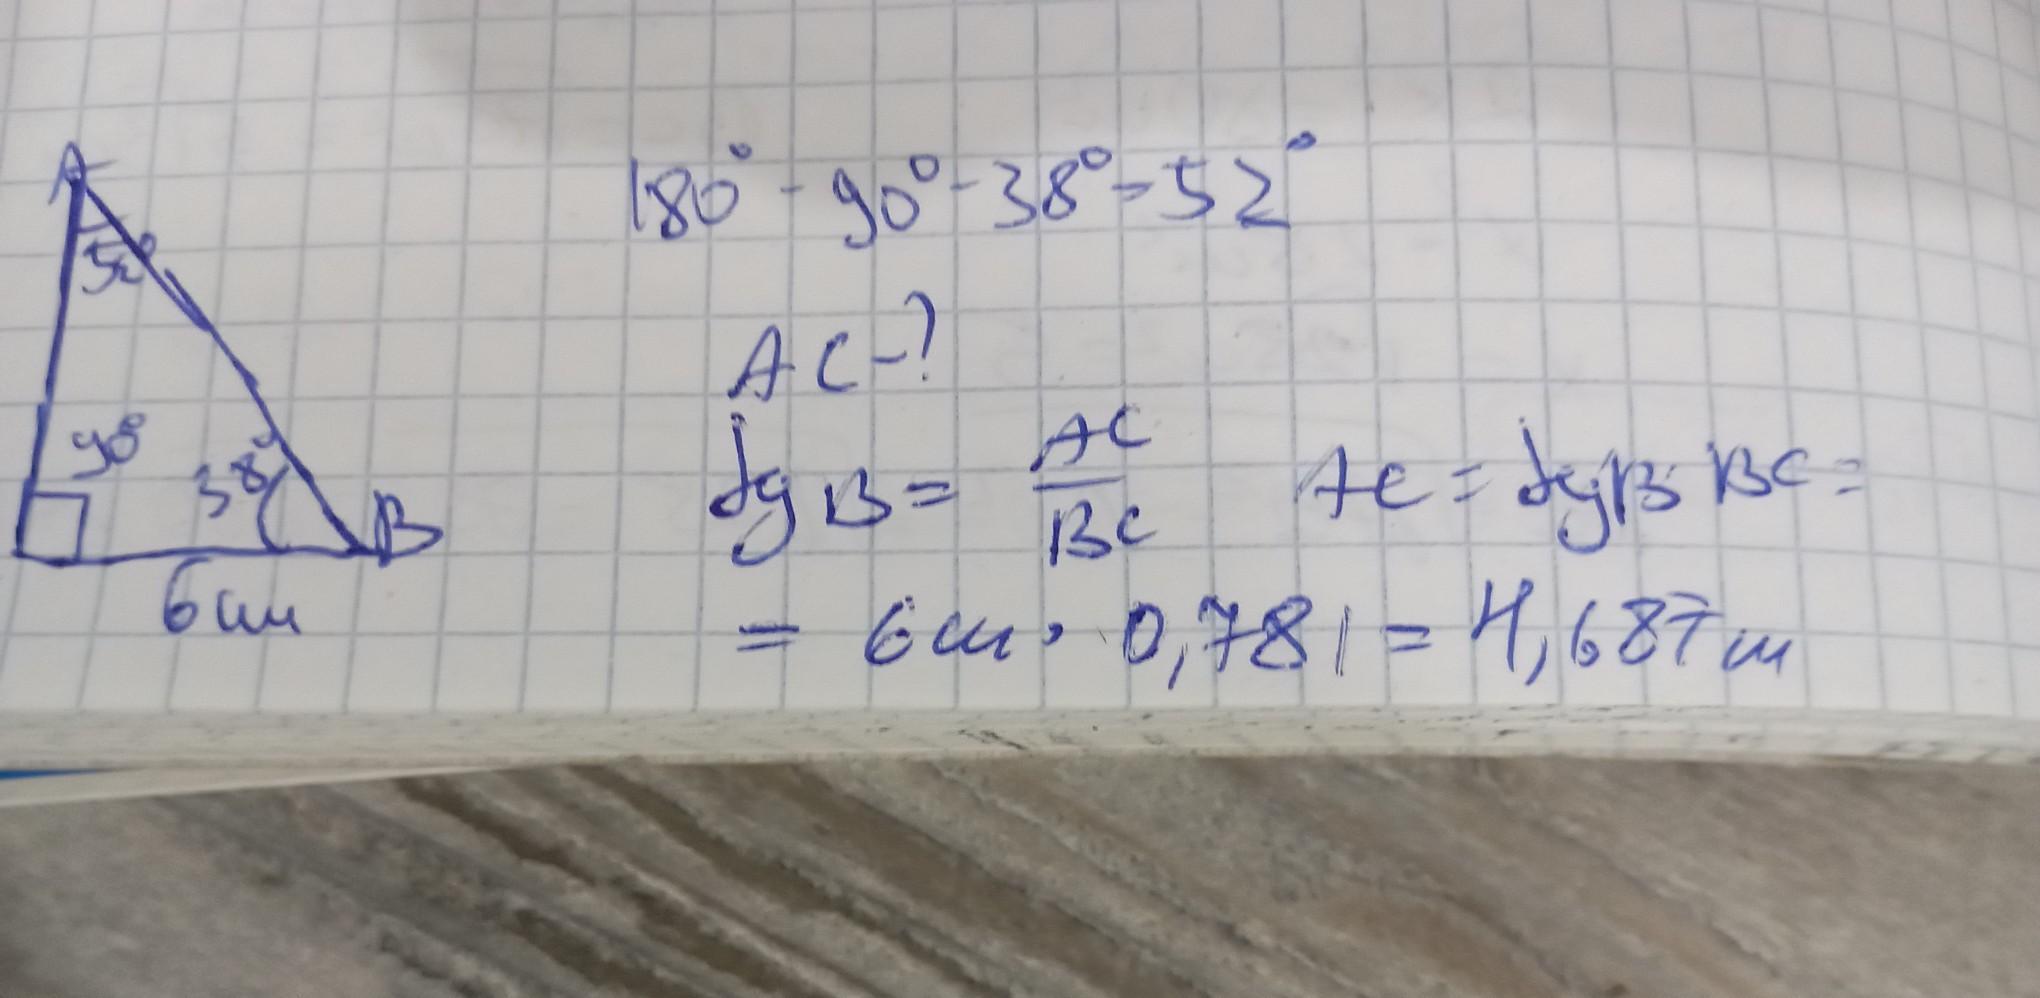 A
52°
90°
38°
B
6 см
180° - 90° - 38° = 52°
AC - ?
tg B = AC / BC
AC = tg B · BC =
= 6 см · 0,781 = 4,687 см